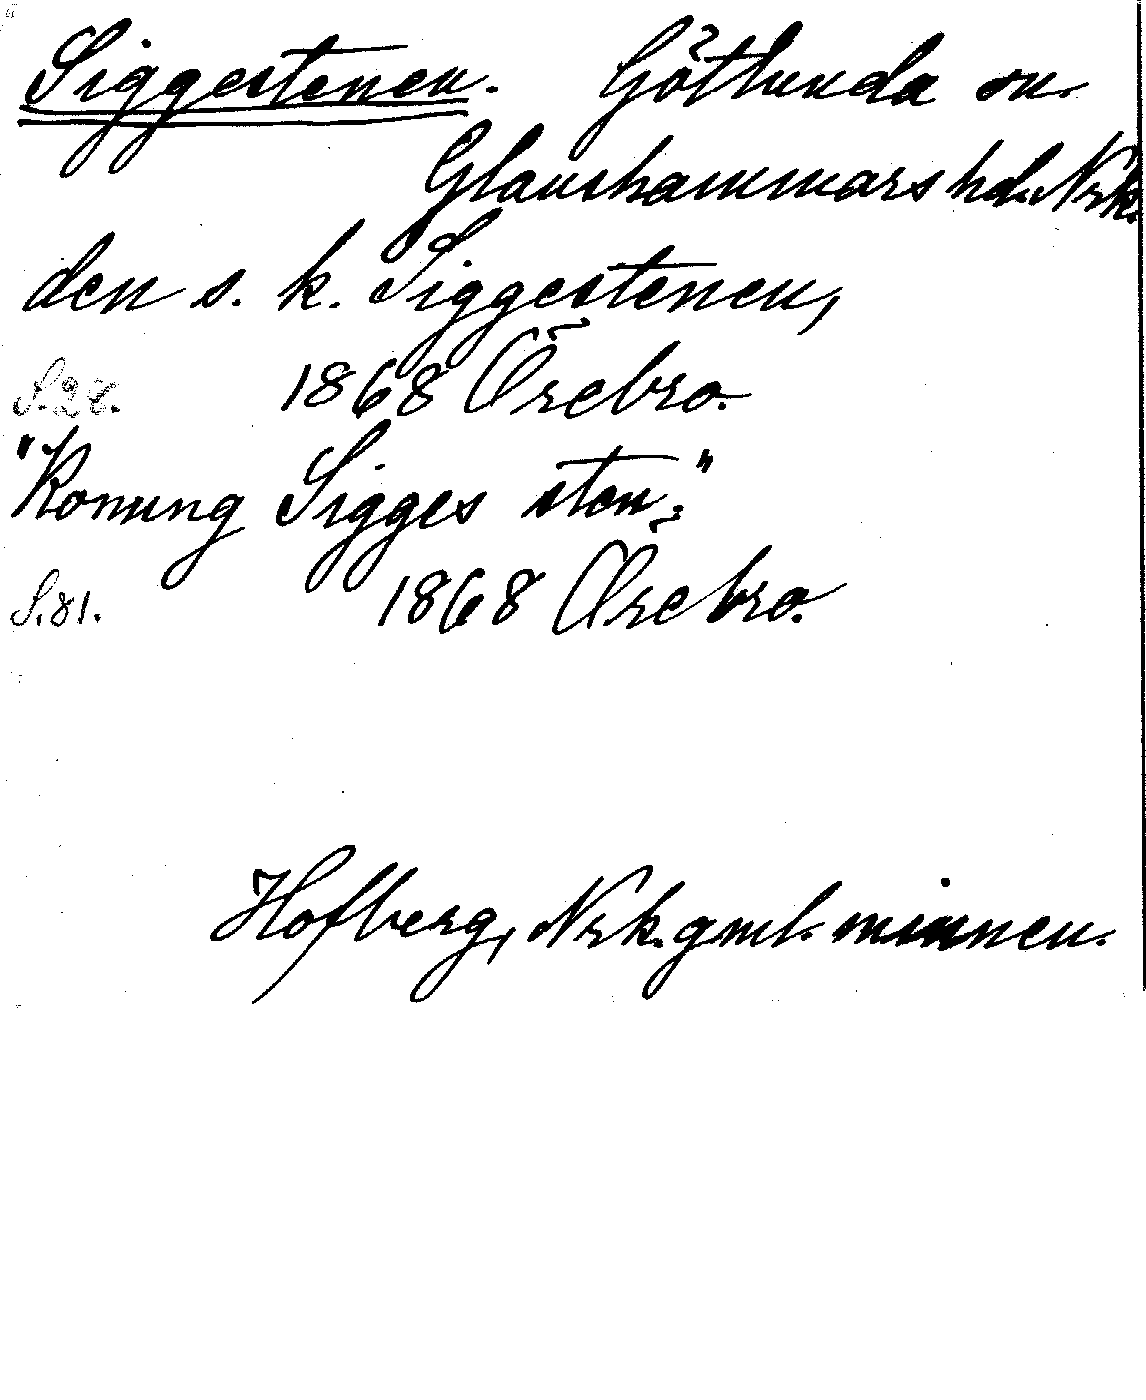 Siggestenen. Götlunda sn.
Glanshammars hd. Nrk.
den s. k. Siggestenen,
S. 28. 1868 Örebro.
"Konung Sigges sten;"
S. 81. 1868 Örebro.
Hofberg, Nrk. gml. minnen.